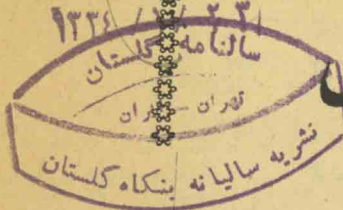 سالنامه گلستان
تهران - ایران
نشریه سالیانه بنگاه گلستان